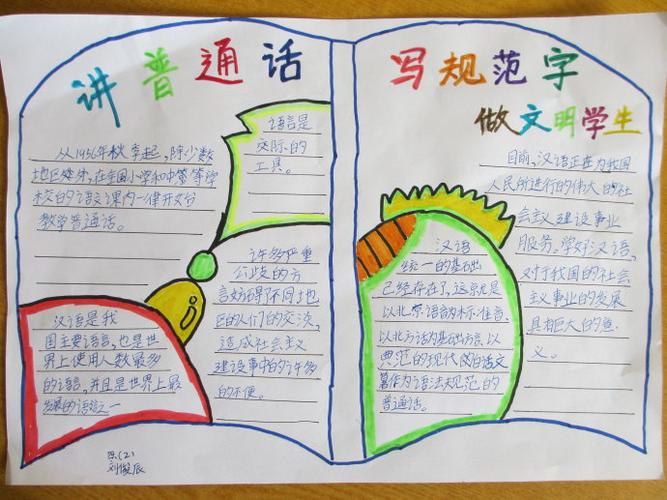 讲普通话
从1956年秋季起，除少数
地区外，在全国小学和中等学
校的语文课内一律开始
教学普通话。
语言是
交际的
工具。
许多严重
分歧的方
言妨碍了不同地
区的人们的交流，
造成社会主义
建设事中的许多
的不便。
汉语是我
国主要语言，也是世
界上使用人数最多
的语言，并且是世界上最
发展的语言之一
四(2)
刘俊辰
写规范字
做文明学生
目前，汉语正在为我国
人民所进行的伟大的社
会主义建设事业
服务。学好汉语，
对于我国的社会
主义事业的发展
具有巨大的意
义。
汉语
统一的基础
已经存在了，这就是
以北京语音为标准音、
以北方话为基础方言、以
典范的现代白话文
著作为语法规范的
普通话。